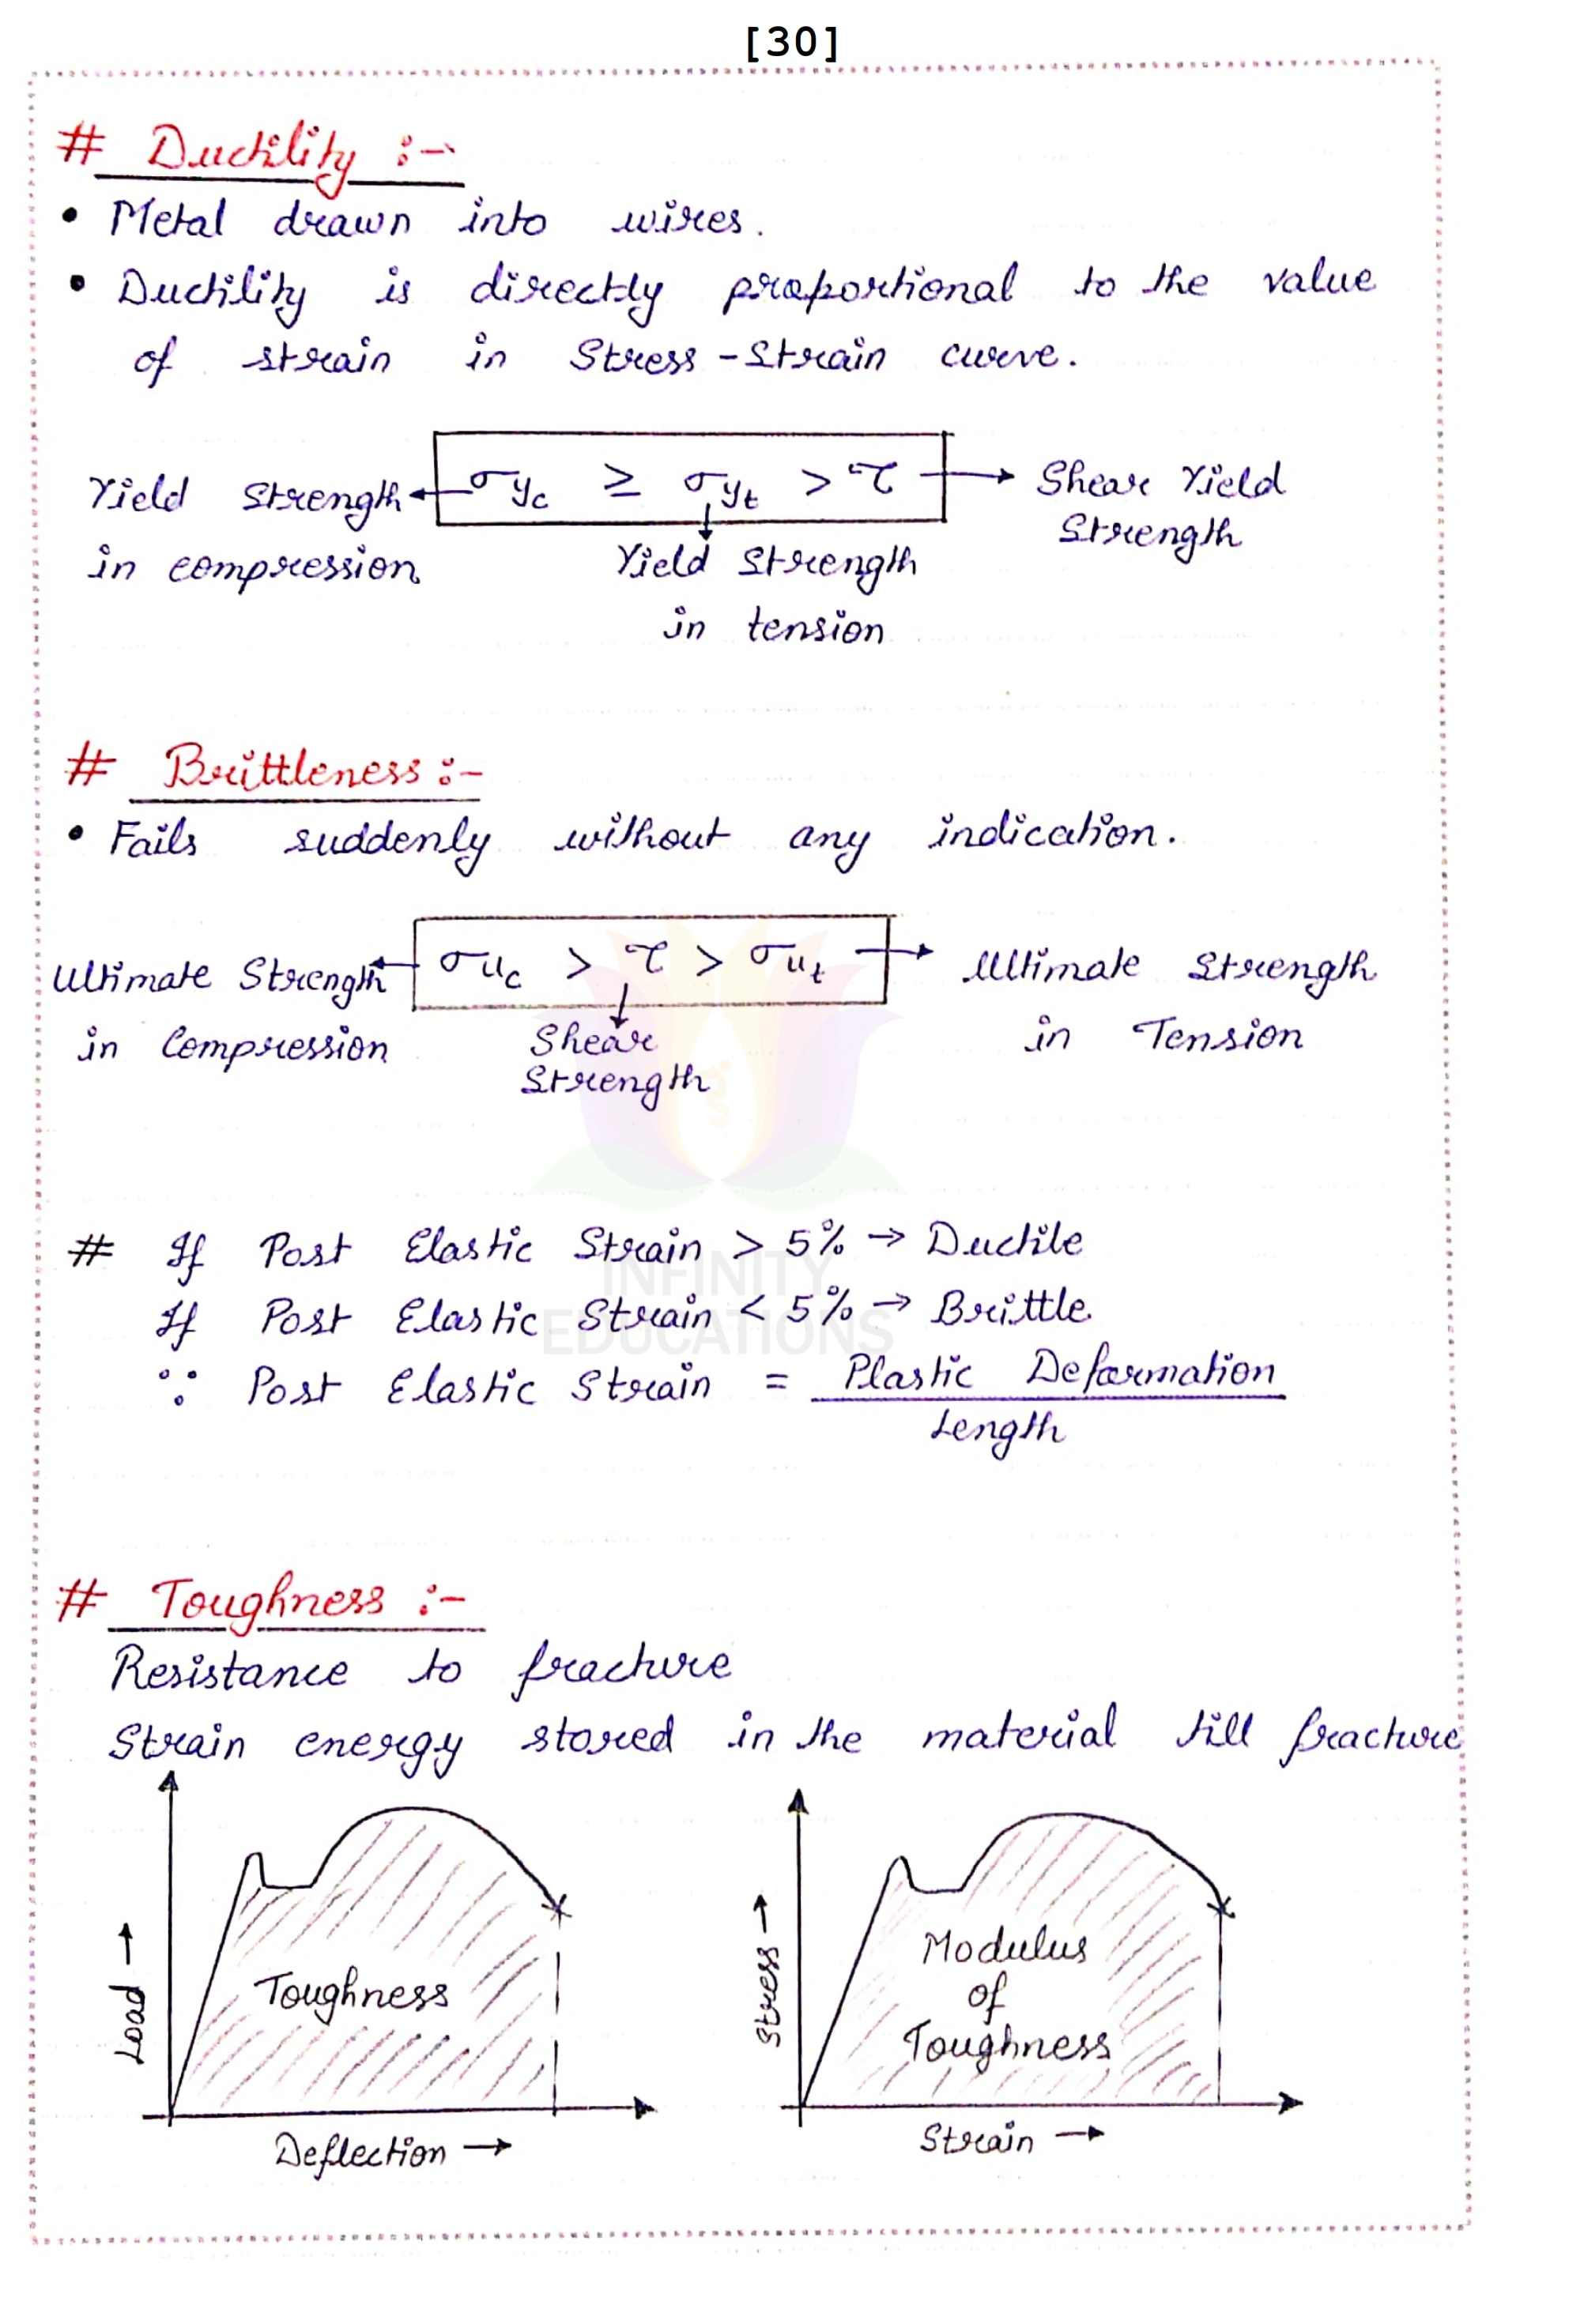 [30]
# Ductility :-
• Metal drawn into wires.
• Ductility is directly proportional to the value
of strain in Stress-Strain curve.
Yield Strength in compression ← σyc ≥ σyt > τ → Shear Yield Strength
Yield Strength
in tension
# Brittleness :-
• Fails suddenly without any indication.
Ultimate Strength in Compression ← σuc > τ > σut → Ultimate Strength in Tension
Shear
Strength
# If Post Elastic Strain > 5% → Ductile
INFINITY
If Post Elastic Strain < 5% → Brittle
EDUCATIONS
∵ Post Elastic Strain = Plastic Deformation / Length
# Toughness :-
Resistance to fracture
Strain energy stored in the material till fracture
Load →
Toughness
Deflection →
Stress →
Modulus
of
Toughness
Strain →